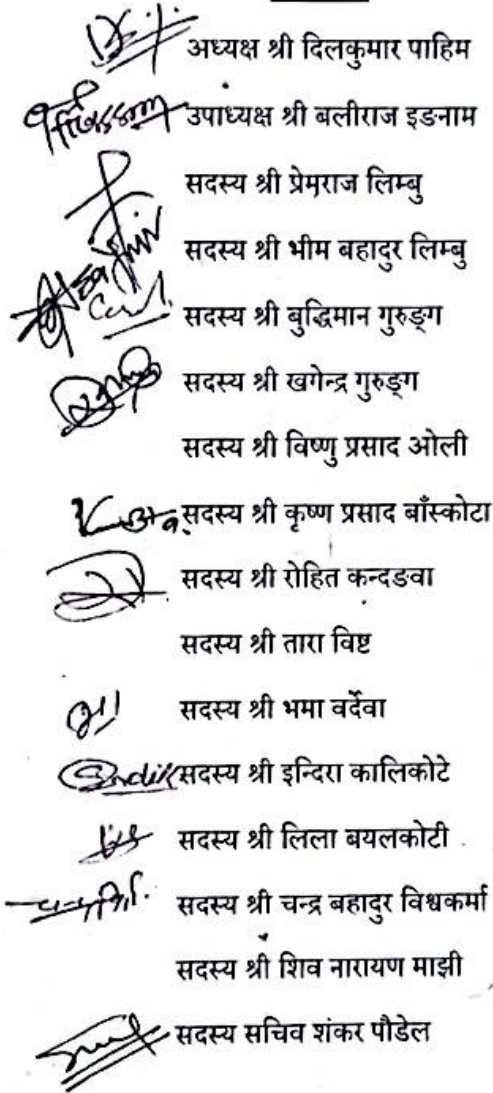 अध्यक्ष श्री दिलकुमार पाहिम
उपाध्यक्ष श्री बलीराज इङनाम
सदस्य श्री प्रेमराज लिम्बु
सदस्य श्री भीम बहादुर लिम्बु
सदस्य श्री बुद्धिमान गुरुङ्ग
सदस्य श्री खगेन्द्र गुरुङ्ग
सदस्य श्री विष्णु प्रसाद ओली
सदस्य श्री कृष्ण प्रसाद बाँस्कोटा
सदस्य श्री रोहित कन्दङवा
सदस्य श्री तारा विष्ट
सदस्य श्री भमा वर्देवा
सदस्य श्री इन्दिरा कालिकोटे
सदस्य श्री लिला बयलकोटी
सदस्य श्री चन्द्र बहादुर विश्वकर्मा
सदस्य श्री शिव नारायण माझी
सदस्य सचिव शंकर पौडेल